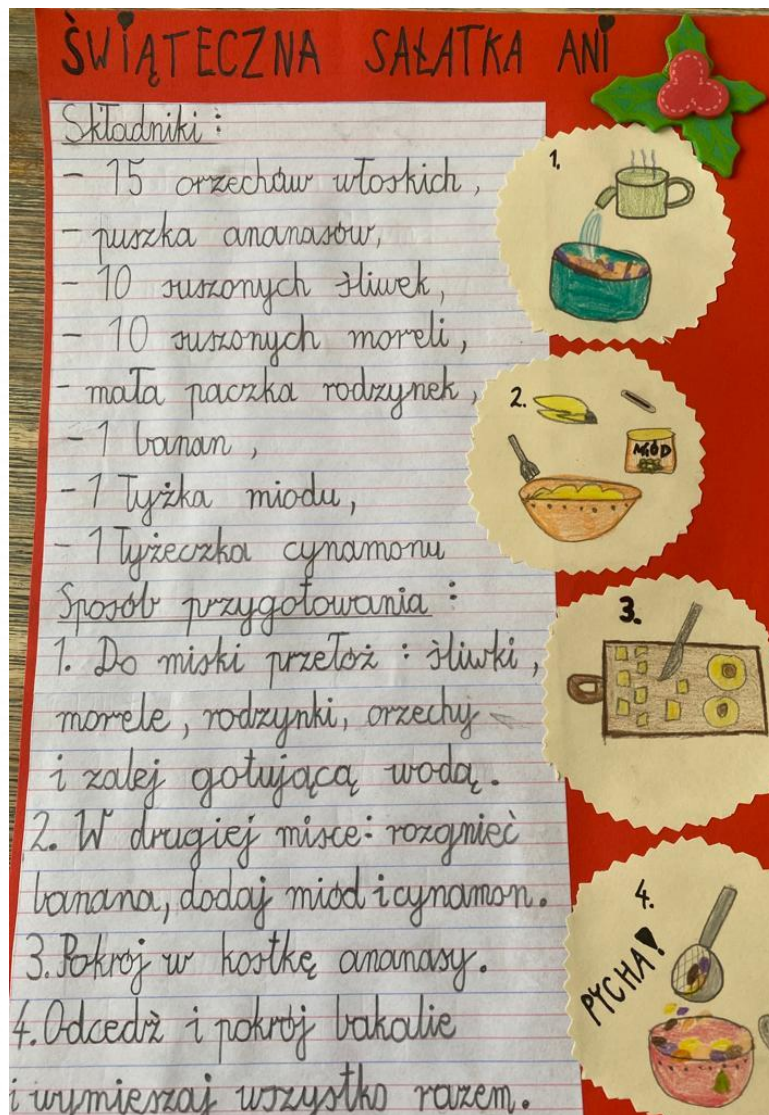 ŚWIĄTECZNA SAŁATKA ANI
Składniki:
- 15 orzechów włoskich,
- puszka ananasów,
- 10 suszonych śliwek,
- 10 suszonych moreli,
- mała paczka rodzynek,
- 1 banan,
- 1 łyżka miodu,
- 1 łyżeczka cynamonu
Sposób przygotowania:
1. Do miski przełóż: śliwki,
morele, rodzynki, orzechy
i zalej gotującą wodą.
2. W drugiej misce: rozgnieć
banana, dodaj miód i cynamon.
3. Pokrój w kostkę ananasy.
4. Odcedź i pokrój bakalie
i wymieszaj wszystko razem.
1.
2.
MIÓD
3.
4.
PYCHA!